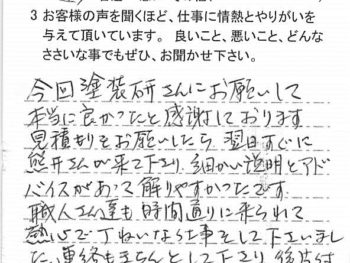 3 お客様の声を聞くほど、仕事に情熱とやりがいを
与えて頂いています。 良いこと、悪いこと、どんな
ささいな事でもぜひ、お聞かせ下さい。
今回塗装研さんにお願いして
本当に良かったと感謝しております
見積もりをお願いしたら翌日すぐに
熊井さんが来て下さり細かい説明とアド
バイスがあって解りやすかったです
職人さん達も時間通りに来られて
熱心で丁ねいなら仕事をして下さいまし
た、連絡もきちんとして下さり 後片付